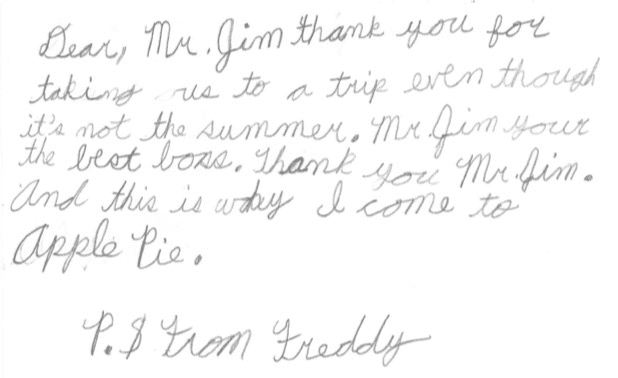 Dear, Mr. Jim thank you for
taking us to a trip even though
it's not the summer. Mr. Jim your
the best boss. Thank you Mr. Jim.
And this is whey I come to
Apple Pie.
P.S From Freddy